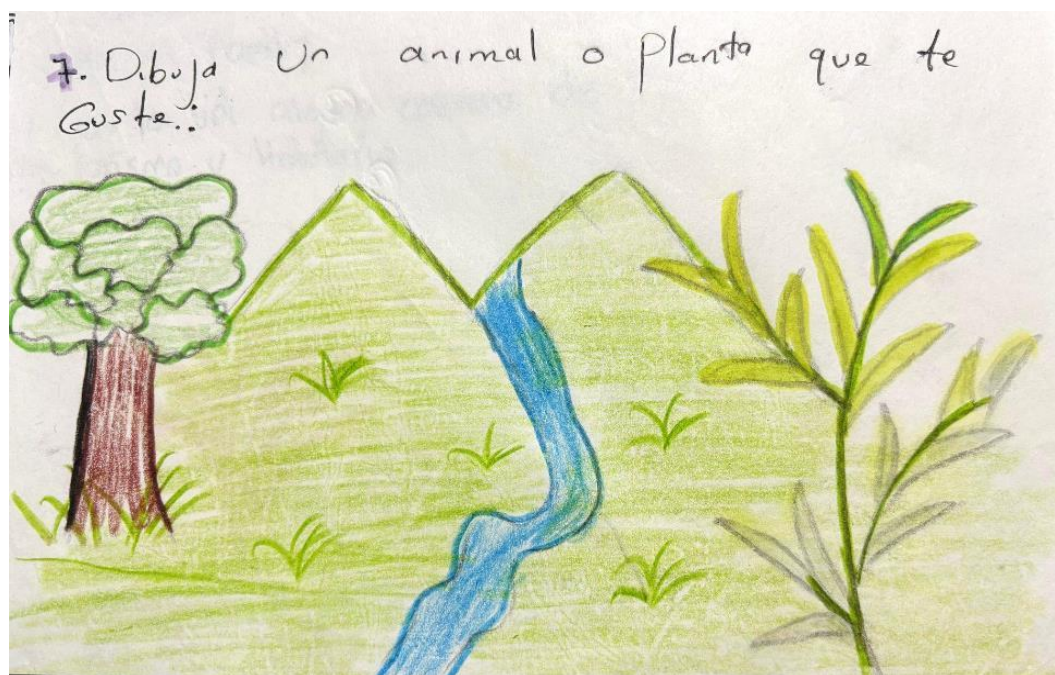 7. Dibuja un animal o Planta que te
Guste.: